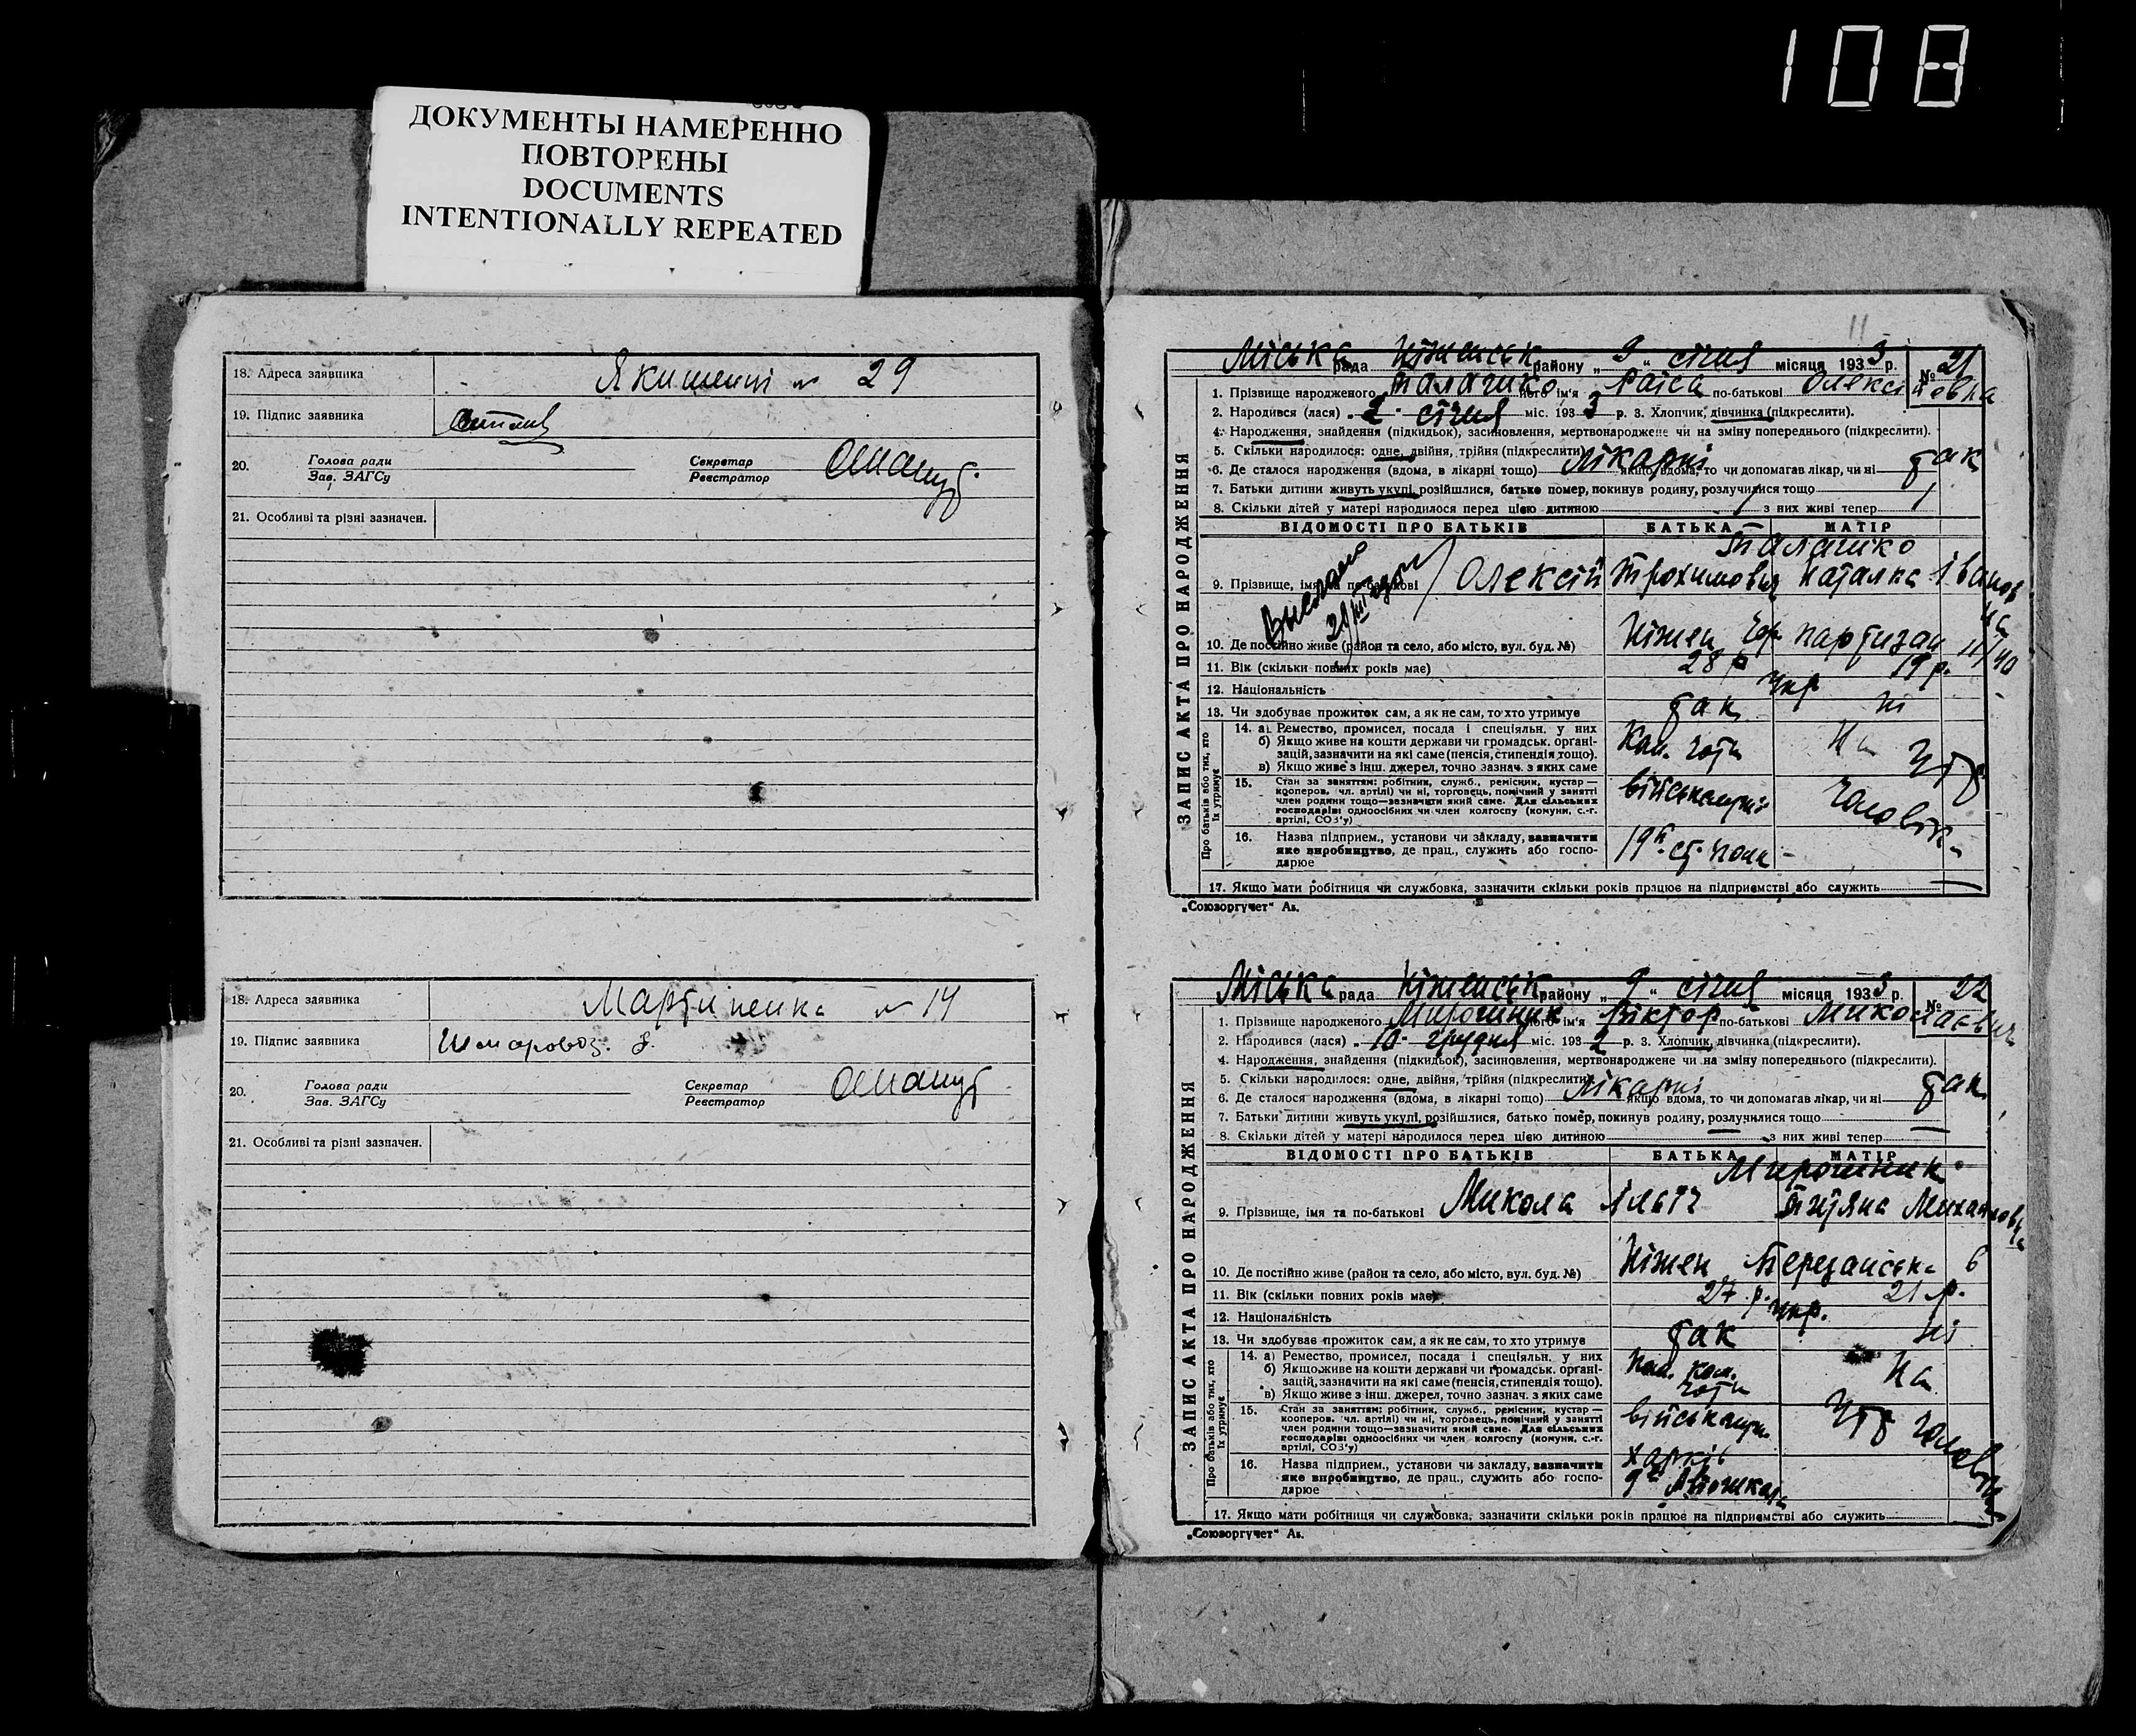 108
ДОКУМЕНТЫ НАМЕРЕННО
ПОВТОРЕНЫ
DOCUMENTS
INTENTIONALLY REPEATED
18. Адреса заявника
№ 29
19. Підпис заявника
20. Голова ради
Зав. ЗАГСу
Секретар
Реєстратор
21. Особливі та різні зазначен.
18. Адреса заявника Мартиненка № 14
19. Підпис заявника
20. Голова ради
Зав. ЗАГСу
Секретар
Реєстратор
21. Особливі та різні зазначен.
11
Міська рада Ніженськ району „ 9 “ січня місяця 1933 р. № 21
1. Прізвище народженого Талашко його ім'я Раїса по-батькові Олексіївна
2. Народився (лася) „ 2 січня міс. 1933 р. 3. Хлопчик, дівчинка (підкреслити).
4. Народження, знайдення (підкидьок), засиновлення, мертвонароджене чи на зміну попереднього (підкреслити).
5. Скільки народилося: одне, двійня, трійня (підкреслити)
6. Де сталося народження (вдома, в лікарні тощо) Лікарні якщо вдома, то чи допомагав лікар, чи ні так
7. Батьки дитини живуть укупі, розійшлися, батько помер, покинув родину, розлучилися тощо
8. Скільки дітей у матері народилося перед цією дитиною з них живі тепер
ЗАПИС АКТА ПРО НАРОДЖЕННЯ
ВІДОМОСТІ ПРО БАТЬКІВ БАТЬКА МАТІР
Талашко
9. Прізвище, імя та по-батькові Олексій Трохимович Наталка Івановна
10. Де постійно живе (район та село, або місто, вул. буд. №) Ніжен партизан 11/40
11. Вік (скільки повних років має) 28 р 19 р.
12. Національність Укр
13. Чи здобуває прожиток сам, а як не сам, то хто утримує так ні
Про батьків або тих, хто їх утримує
14. а) Ремество, промисел, посада і спеціяльн. у них
б) Якщо живе на кошти держави чи громадськ. органі-
зацій, зазначити на які саме (пенсія, стипендія тощо).
в) Якщо живе з інш. джерел, точно зазнач. з яких саме
Ком. чоти На утр
15. Стан за заняттям: робітник, служб., ремісник, кустар —
кооперов. чл. артілі) чи ні, торговець, помічний у занятті
член родини тощо—зазначити який саме. Для сільських
господарів: одноосібних чи член колгоспу (комуни, с.-г.
артілі, СОЗ'у)
чоловік
16. Назва підприєм., установи чи закладу, зазначити
яке виробництво, де прац., служить або госпо-
дарює
17. Якщо мати робітниця чи службовка, зазначити скільки років працює на підприємстві або служить
„Союзоргучет“ Ак.
Міська рада Ніженськ району „ 9 “ січня місяця 1933 р. № 22
1. Прізвище народженого Мирошник його ім'я Віктор по-батькові Миколаєвич
2. Народився (лася) „ 10 грудня міс. 1932 р. 3. Хлопчик, дівчинка (підкреслити).
4. Народження, знайдення (підкидьок), засиновлення, мертвонароджене чи на зміну попереднього (підкреслити).
5. Скільки народилося: одне, двійня, трійня (підкреслити)
6. Де сталося народження (вдома, в лікарні тощо) Лікарні якщо вдома, то чи допомагав лікар, чи ні так
7. Батьки дитини живуть укупі, розійшлися, батько помер, покинув родину, розлучилися тощо
8. Скільки дітей у матері народилося перед цією дитиною з них живі тепер
ЗАПИС АКТА ПРО НАРОДЖЕННЯ
ВІДОМОСТІ ПРО БАТЬКІВ БАТЬКА МАТІР
Мирошник
9. Прізвище, імя та по-батькові Микола Ільїч Титяна Михайловна
10. Де постійно живе (район та село, або місто, вул. буд. №) Ніжен 6
11. Вік (скільки повних років має) 27 р. 21 р.
12. Національність укр.
13. Чи здобуває прожиток сам, а як не сам, то хто утримує так ні
Про батьків або тих, хто їх утримує
14. а) Ремество, промисел, посада і спеціяльн. у них
б) Якщо живе на кошти держави чи громадськ. органі-
зацій, зазначити на які саме (пенсія, стипендія тощо).
в) Якщо живе з інш. джерел, точно зазнач. з яких саме
Пом. ком. чоти На
15. Стан за заняттям: робітник, служб., ремісник, кустар —
кооперов. чл. артілі) чи ні, торговець, помічний у занятті
член родини тощо—зазначити який саме. Для сільських
господарів: одноосібних чи член колгоспу (комуни, с.-г.
артілі, СОЗ'у)
утр чоловік
16. Назва підприєм., установи чи закладу, зазначити
яке виробництво, де прац., служить або госпо-
дарює
Харків
17. Якщо мати робітниця чи службовка, зазначити скільки років працює на підприємстві або служить
„Союзоргучет“ Ак.